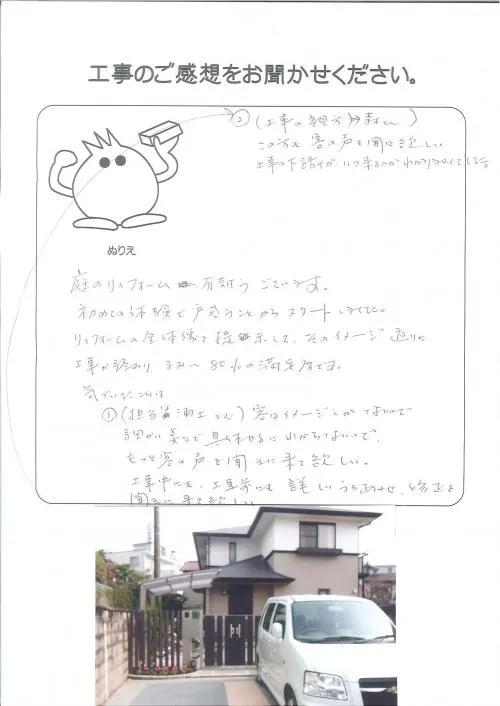 工事のご感想をお聞かせください。
② (工事の親方→森さん)
この方も客の声を聞いて欲しい。
工事の下請けが、いつ来るのかわかりませんでした。
ぬりえ
庭のリフォーム 有難うございます。
初めての体験で戸惑うことからスタートしました。
リフォームの全体像を提示して、そのイメージ通りに
工事が終わり、80〜85%の満足度です。
気づいたことは
① (担当 浦工さん) 客はイメージしかてないので
詳細がわからないので、
もっと客の声を聞きに来て欲しい。
工事中にも、工事前にも詳しいうち合わせ、修正を
聞きに来て欲しい